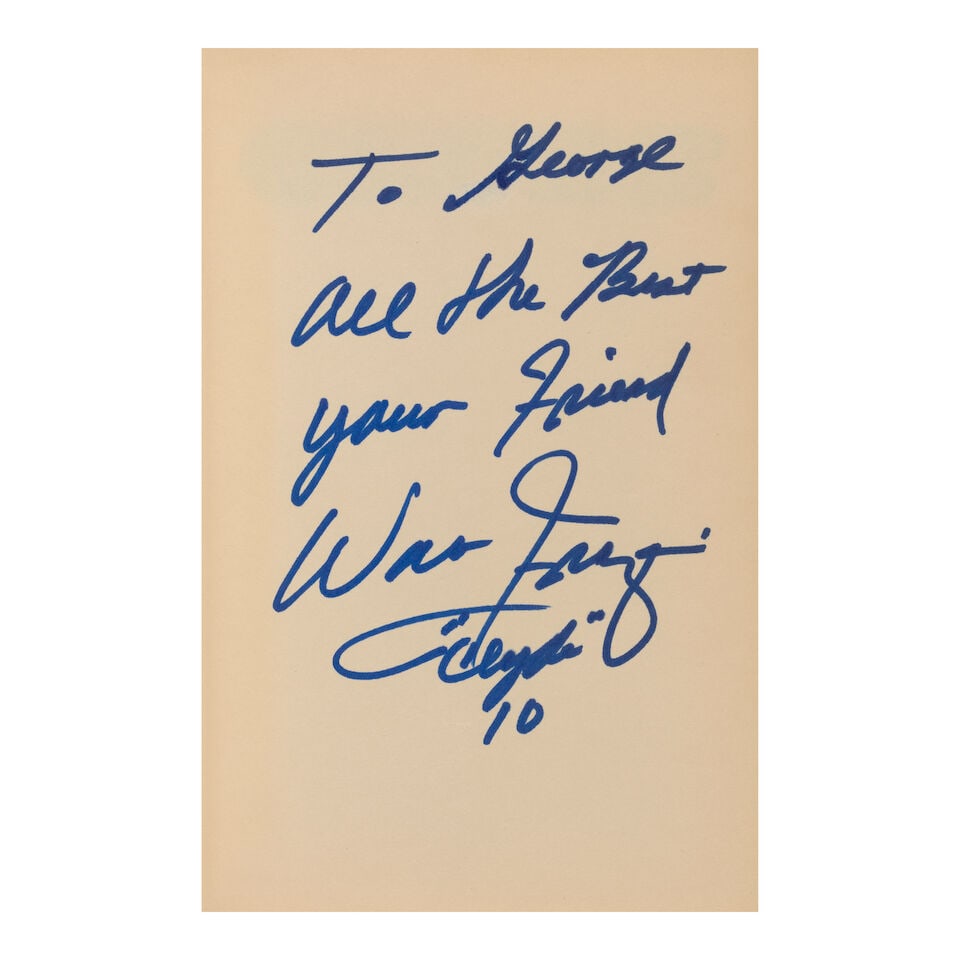 To George
all the Best
your Friend
Walt Frazier
"Clyde"
10